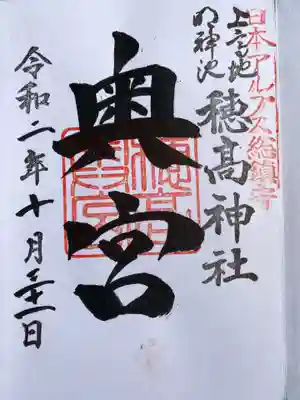 日本アルプス総鎮守
上高地
明神池
穂髙神社
奥宮
令和二年十月三十一日